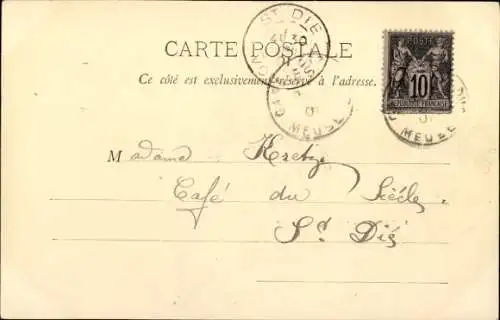 ST DIE
CARTE POSTALE
Ce côté est exclusivement réservé à l'adresse.
MEUSE
POSTE
10
REPUBLIQUE FRANÇAISE
MEUSE
Madame
Café du Siècle
St Dié